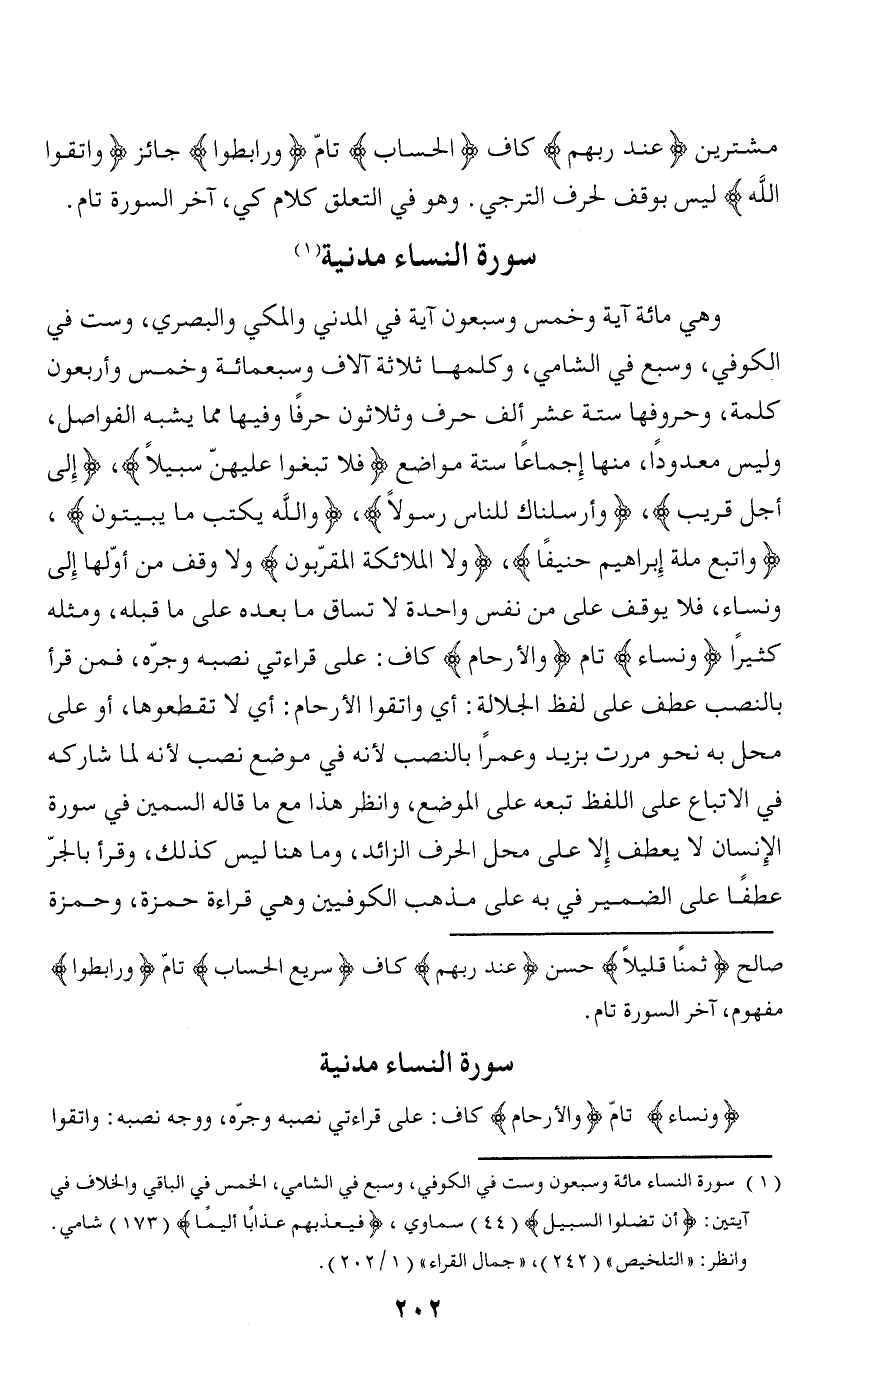 مشترين ﴿عند ربهم﴾ كاف ﴿الحساب﴾ تامّ ﴿ورابطوا﴾ جائز ﴿واتقوا
اللَّه﴾ ليس بوقف لحرف الترجي. وهو في التعلق كلام كي، آخر السورة تام.
سورة النساء مدنية(١)
وهي مائة آية وخمس وسبعون آية في المدني والمكي والبصري، وست في
الكوفي، وسبع في الشامي، وكلمها ثلاثة آلاف وسبعمائة وخمس وأربعون
كلمة، وحروفها ستة عشر ألف حرف وثلاثون حرفًا وفيها مما يشبه الفواصل،
وليس معدودًا، منها إجماعًا ستة مواضع ﴿فلا تبغوا عليهنّ سبيلاً﴾، ﴿إلى
أجل قريب﴾، ﴿وأرسلناك للناس رسولاً﴾، ﴿واللَّه يكتب ما يبيتون﴾ ،
﴿واتبع ملة إبراهيم حنيفًا﴾، ﴿ولا الملائكة المقرّبون﴾ ولا وقف من أوّلها إلى
ونساء، فلا يوقف على من نفس واحدة لا تساق ما بعده على ما قبله، ومثله
كثيرًا ﴿ونساء﴾ تام ﴿والأرحام﴾ كاف: على قراءتي نصبه وجرّه، فمن قرأ
بالنصب عطف على لفظ الجلالة: أي واتقوا الأرحام: أي لا تقطعوها، أو على
محل به نحو مررت بزيد وعمرًا بالنصب لأنه في موضع نصب لأنه لما شاركه
في الاتباع على اللفظ تبعه على الموضع، وانظر هذا مع ما قاله السمين في سورة
الإنسان لا يعطف إلا على محل الحرف الزائد، وما هنا ليس كذلك، وقرأ بالجرّ
عطفًا على الضمير في به على مذهب الكوفيين وهي قراءة حمزة، وحمزة
صالح ﴿ثمنًا قليلاً﴾ حسن ﴿عند ربهم﴾ كاف ﴿سريع الحساب﴾ تامّ ﴿ورابطوا﴾
مفهوم، آخر السورة تام.
سورة النساء مدنية
﴿ونساء﴾ تامّ ﴿والأرحام﴾ كاف: على قراءتي نصبه وجرّه، ووجه نصبه: واتقوا
(١) سورة النساء مائة وسبعون وست في الكوفي، وسبع في الشامي، الخمس في الباقي والخلاف في
آيتين: ﴿أن تضلوا السبيل﴾ (٤٤) سماوي ، ﴿فيعذبهم عذابًا أليمًا﴾ (١٧٣) شامي.
وانظر: «التلخيص» (٢٤٢)، «جمال القراء» (٢٠٢/١).
٢٠٢